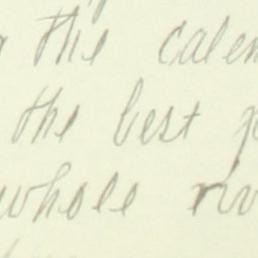 the calen
the best p
whole riv